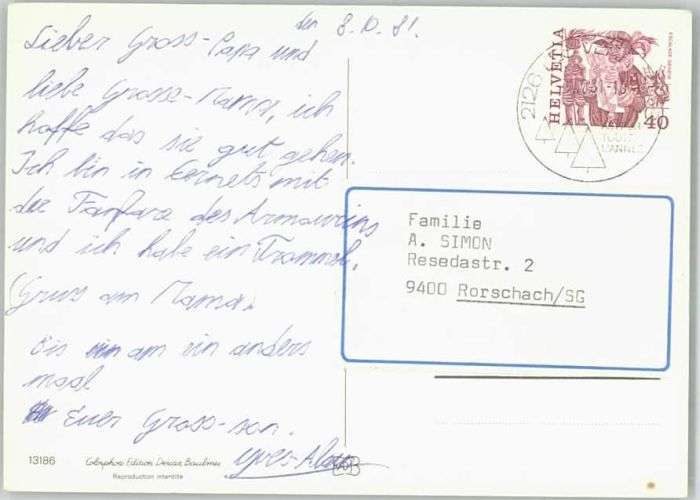 den 8.10.81.
Lieber Gross-Papa und
liebe Gross-Mama, ich
hoffe das sie gut gehen.
Ich bin in Cernets mit
der Fanfare des Armourins
und ich habe ein Trommel.
Gruss am Mama.
Bis am ein anders
maal
Euer Gross-son.
Yves-Alain
HELVETIA
40
2126
TOUTE
L'ANNÉE
Familie
A. SIMON
Resedastr. 2
9400 Rorschach/SG
13186
Reproduction interdite